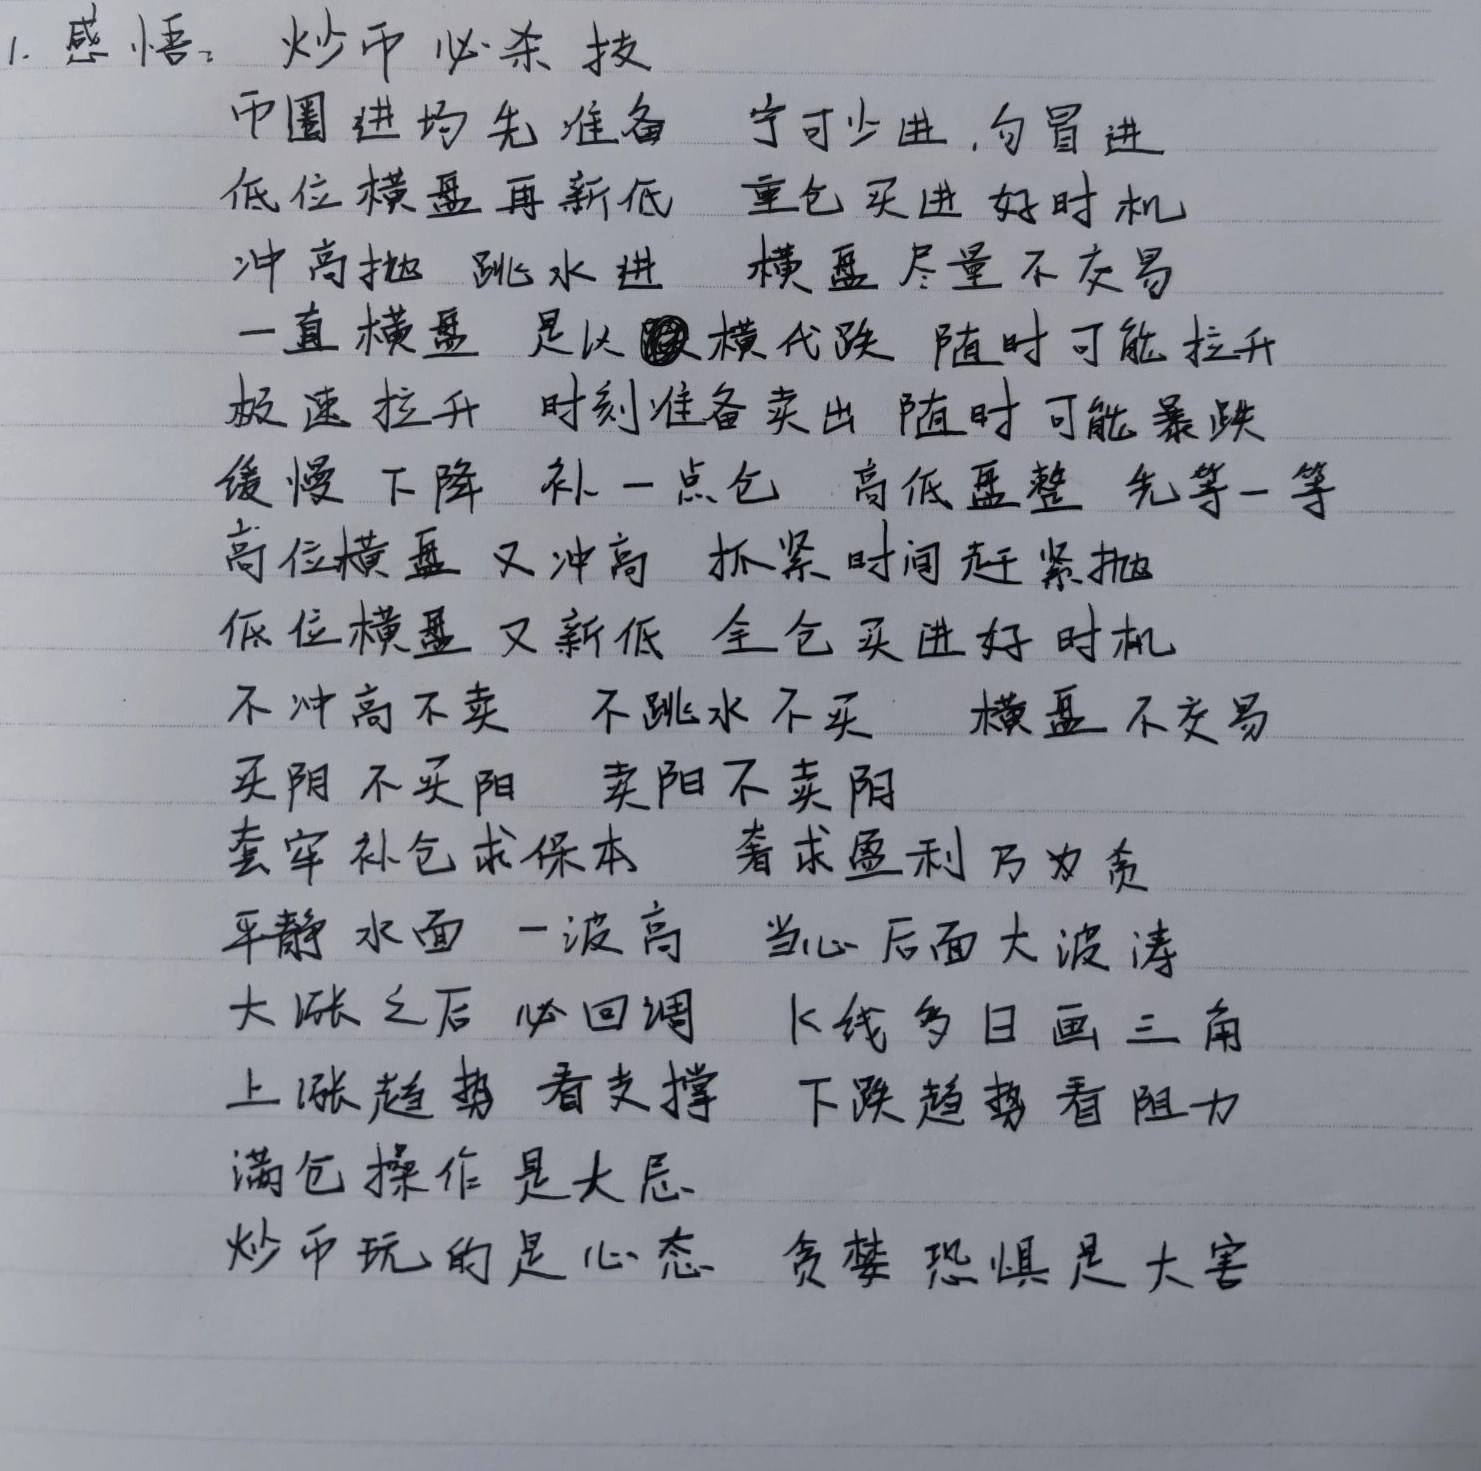 1. 感悟: 炒币必杀技
币圈进场先准备 宁可少进,勿冒进
低位横盘再新低 重仓买进好时机
冲高抛 跳水进 横盘尽量不交易
一直横盘 是以横代跌 随时可能拉升
极速拉升 时刻准备卖出 随时可能暴跌
缓慢下降 补一点仓 高低盘整 先等一等
高位横盘又冲高 抓紧时间赶紧抛
低位横盘又新低 全仓买进好时机
不冲高不卖 不跳水不买 横盘不交易
买阴不买阳 卖阳不卖阴
套牢补仓求保本 奢求盈利乃为贪
平静水面一波高 当心后面大波涛
大涨之后必回调 K线多日画三角
上涨趋势看支撑 下跌趋势看阻力
满仓操作是大忌
炒币玩的是心态 贪婪恐惧是大害